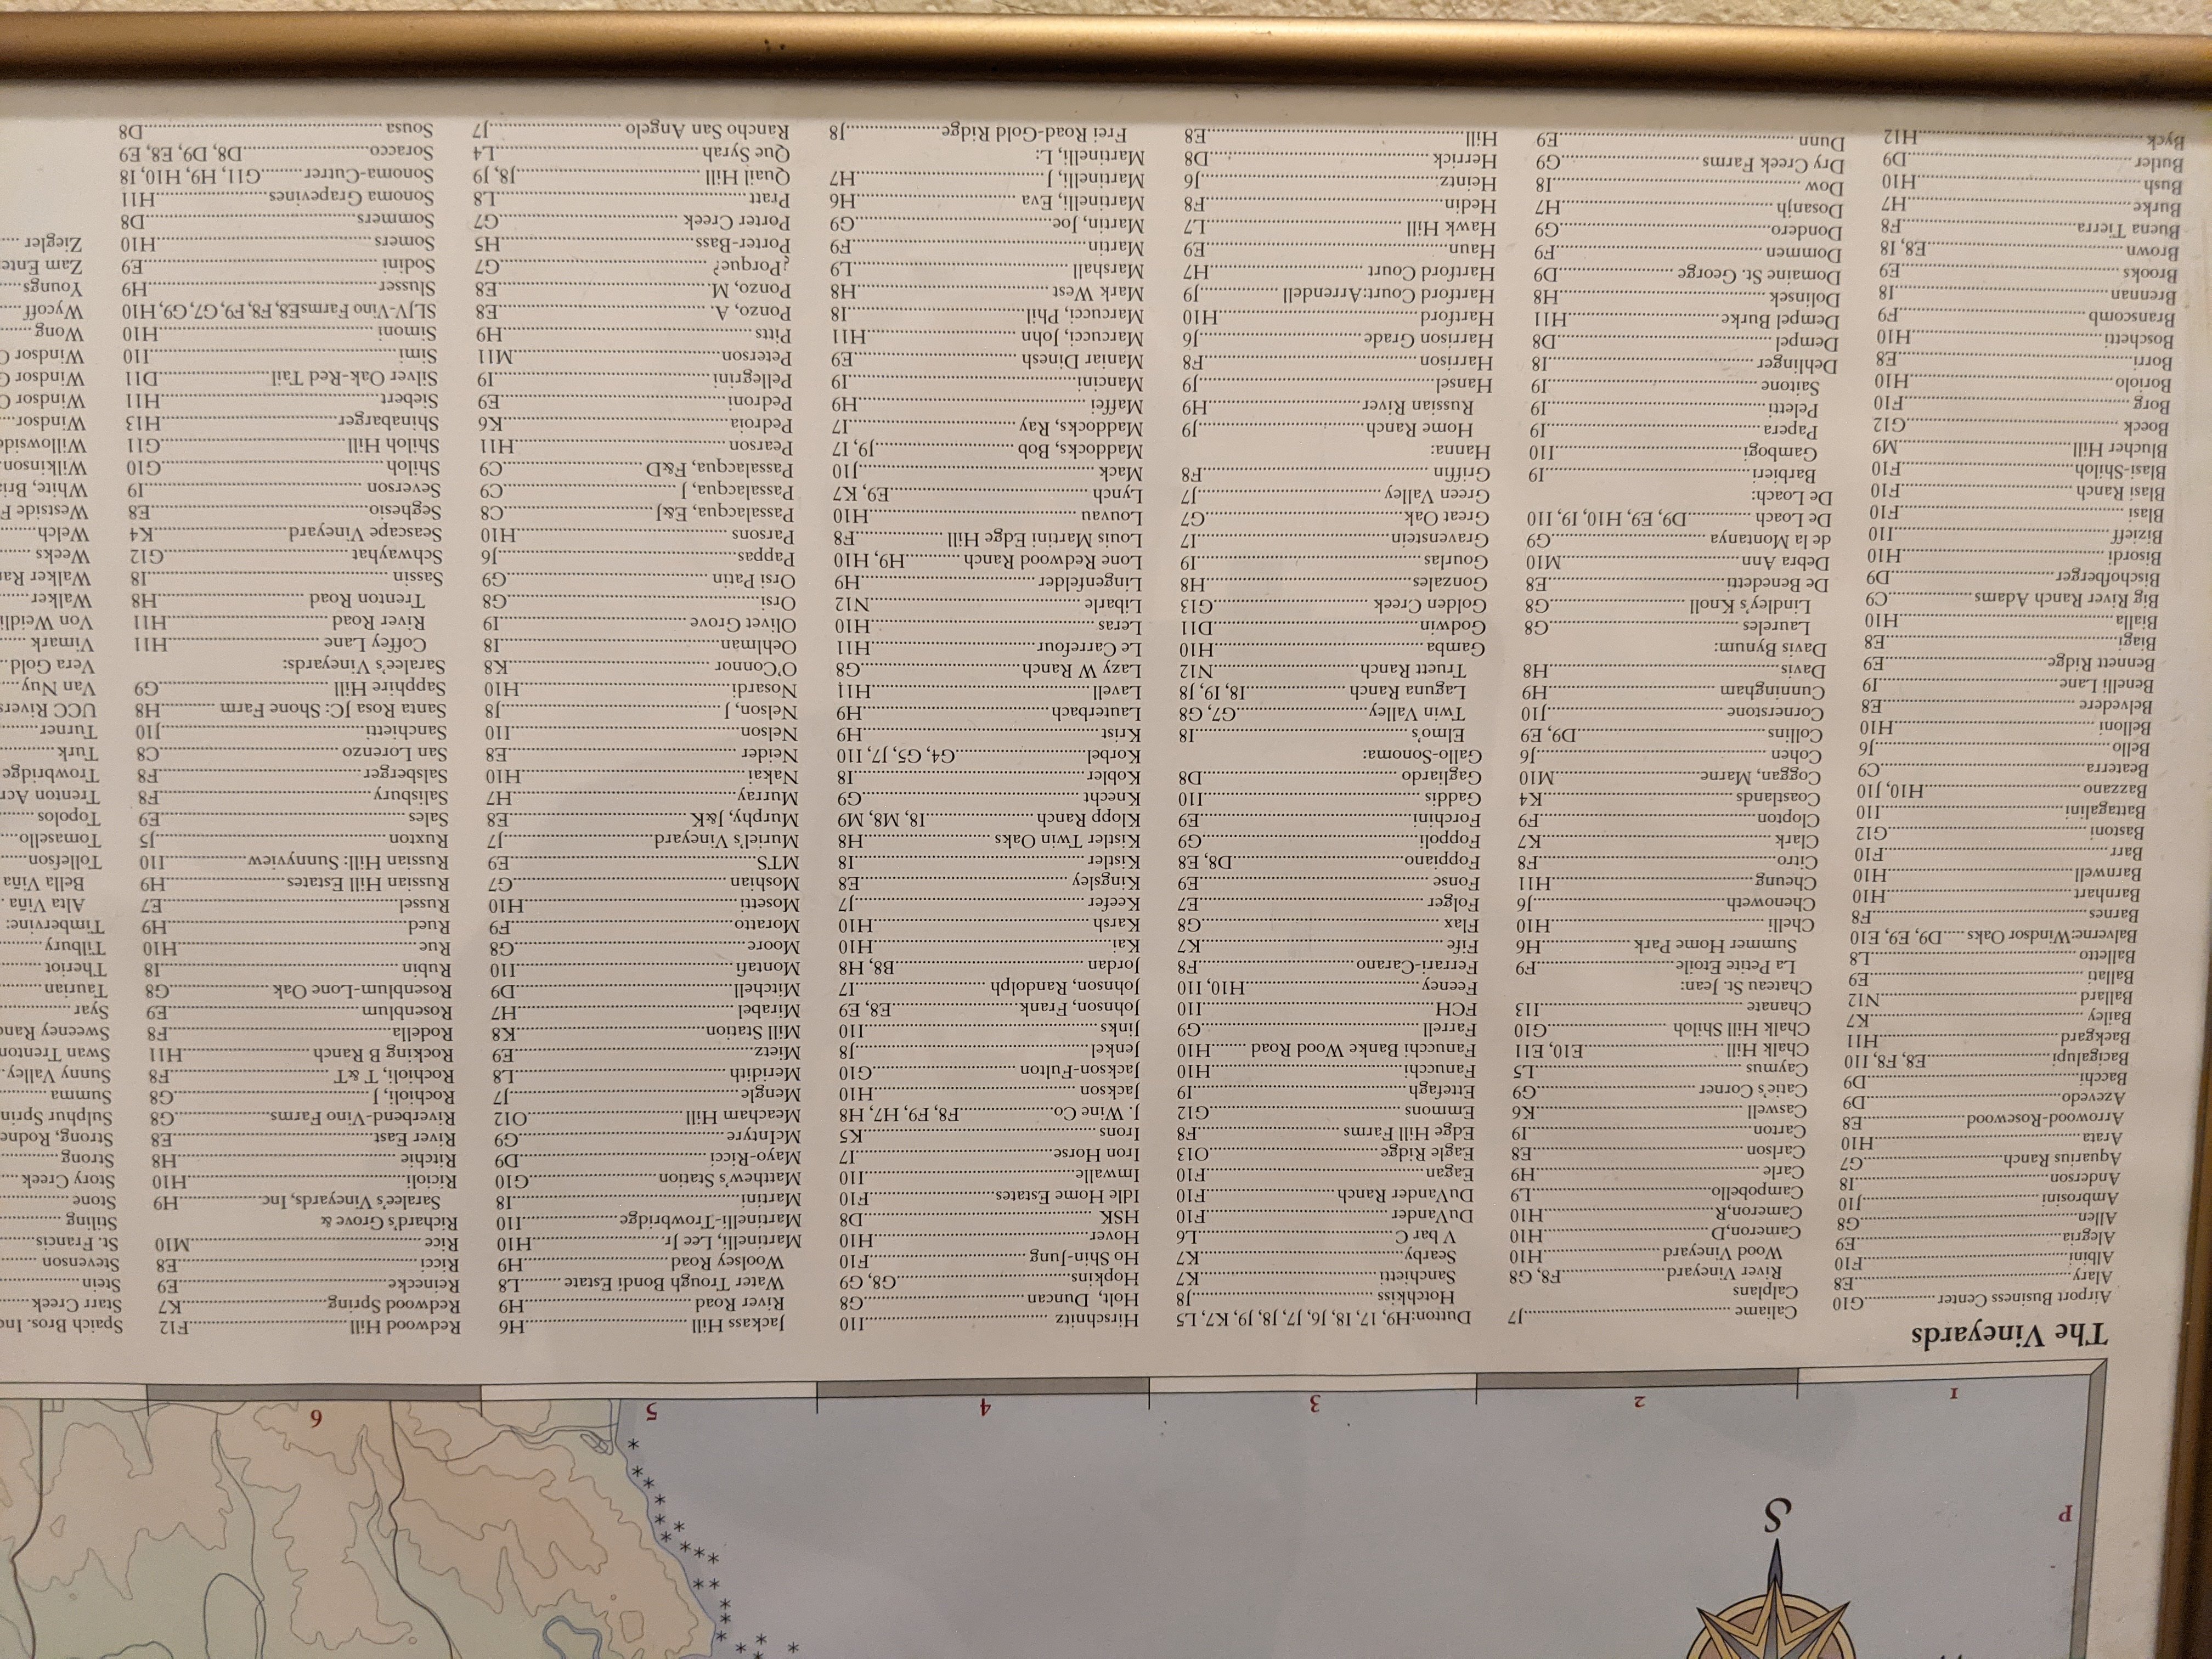 S
P
1
2
3
4
5
6
The Vineyards
Airport Business Center ... G10
Alary ... E8
Albini ... F10
Alegria ... E9
Allen ... G8
Ambrosini ... J10
Anderson ... I8
Aquarius Ranch ... G7
Arata ... H10
Arrowood-Rosewood ... E8
Azevedo ... D9
Bacchi ... D9
Bacigalupi ... E8, F8, I10
Backgard ... H11
Bailey ... K7
Ballard ... N12
Ballati ... E9
Balletto ... L8
Balverne:Windsor Oaks ... D9, E9, E10
Barnes ... F8
Barnhart ... H10
Barnwell ... H10
Barr ... F10
Bastoni ... G12
Battagalini ... I10
Bazzano ... H10, J10
Beaterra ... C9
Bello ... J6
Belloni ... H10
Belvedere ... E8
Benelli Lane ... I9
Bennett Ridge ... E9
Biagi ... E8
Bialla ... H10
Big River Ranch Adams ... C9
Bischofberger ... D9
Bisordi ... H10
Bizieff ... I10
Blasi ... F10
Blasi Ranch ... F10
Blasi-Shiloh ... F10
Blucher Hill ... M9
Boeck ... G12
Borg ... F10
Boriolo ... H10
Borri ... E8
Boschetti ... H10
Branscomb ... F9
Brennan ... I8
Brooks ... E9
Brown ... E8, I8
Buena Tierra ... F8
Burke ... H7
Bush ... H10
Butler ... D9
Byck ... H12
Caliame ... J7
Calplans
River Vineyard ... F8, G8
Wood Vineyard ... H10
Cameron,D ... H10
Cameron,R ... H10
Campobello ... L9
Carle ... H9
Carlson ... E8
Carton ... I9
Caswell ... K6
Catie's Corner ... G9
Caymus ... L5
Chalk Hill ... E10, E11
Chalk Hill Shiloh ... G10
Chanate ... I13
Chateau St. Jean:
La Petite Etoile ... F9
Summer Home Park ... H6
Chelli ... H10
Chenoweth ... J6
Cheung ... H11
Citro ... F8
Clark ... K7
Clopton ... F9
Coastlands ... K4
Coggan, Marne ... M10
Cohen ... J6
Collins ... D9, E9
Cornerstone ... J10
Cunningham ... H9
Davis ... H8
Davis Bynum:
Laureles ... G8
Lindley's Knoll ... G8
De Benedetti ... E8
Debra Ann ... M10
de la Montanya ... G9
De Loach ... D9, E9, H10, I9, I10
De Loach:
Barbieri ... I9
Gambogi ... I10
Papera ... I9
Peletti ... I9
Saitone ... I9
Dehlinger ... I8
Dempel ... D8
Dempel Burke ... H11
Dolinsek ... H8
Domaine St. George ... D9
Dommen ... F9
Dondero ... G9
Dosanjh ... H7
Dow ... I8
Dry Creek Farms ... G9
Dunn ... E9
Dutton:H9, I7, I8, J6, J7, J8, J9, K7, L5
Hotchkiss ... J8
Sanchietti ... K7
Searby ... K7
V bar C ... L6
DuVander ... F10
DuVander Ranch ... F10
Eagan ... F10
Eagle Ridge ... O13
Edge Hill Farms ... F8
Emmons ... G12
Ettefagh ... I9
Fanucchi ... H10
Fanucchi Banke Wood Road ... H10
Farrell ... G9
FCH ... I10
Feeney ... H10, I10
Ferrari-Carano ... F8
Fife ... K7
Flax ... G8
Folger ... E7
Fonse ... E9
Foppiano ... D8, E8
Foppoli ... G9
Forchini ... E9
Gaddis ... I10
Gagliardo ... D8
Gallo-Sonoma:
Elmo's ... I8
Twin Valley ... G7, G8
Laguna Ranch ... I8, I9, J8
Truett Ranch ... N12
Gamba ... H10
Godwin ... D11
Golden Creek ... G13
Gonzales ... H8
Gourlas ... I9
Gravenstein ... I7
Great Oak ... G7
Green Valley ... J7
Griffin ... F8
Hanna:
Home Ranch ... J9
Russian River ... H9
Hansel ... J9
Harrison ... F8
Harrison Grade ... J6
Hartford ... H10
Hartford Court:Arrendell ... J9
Hartford Court ... H7
Haun ... E9
Hawk Hill ... L7
Hedin ... F8
Heintz ... J6
Herrick ... D8
Hill ... E8
Hirschnitz ... I10
Holt, Duncan ... G8
Hopkins ... G8, G9
Ho Shin-Jung ... F10
Hover ... H10
HSK ... D8
Idle Home Estates ... F10
Imwalle ... I10
Iron Horse ... I7
Irons ... K5
J. Wine Co. ... F8, F9, H7, H8
Jackson ... H10
Jackson-Fulton ... G10
Jenkel ... J8
Jinks ... I10
Johnson, Frank ... E8, E9
Johnson, Randolph ... I7
Jordan ... B8, H8
Kai ... H10
Karsh ... H10
Keefer ... J7
Kingsley ... E8
Kistler ... I8
Kistler Twin Oaks ... H8
Klopp Ranch ... I8, M8, M9
Knecht ... G9
Kobler ... I8
Korbel ... G4, G5, J7, I10
Krist ... H9
Lauterbach ... H9
Lavell ... H11
Lazy W Ranch ... G8
Le Carrefour ... H11
Leras ... H10
Libarle ... N12
Lingenfelder ... H9
Lone Redwood Ranch ... H9, H10
Louis Martini Edge Hill ... F8
Louvau ... H10
Lynch ... E9, K7
Mack ... J10
Maddocks, Bob ... J9, I7
Maddocks, Ray ... I7
Maffei ... H9
Mancini ... I9
Maniar Dinesh ... E9
Marcucci, John ... H11
Marcucci, Phil ... I8
Mark West ... H8
Marshall ... L9
Martin ... F9
Martin, Joe ... G9
Martinelli, Eva ... H6
Martinelli, J ... H7
Martinelli, L:
Frei Road-Gold Ridge ... J8
Jackass Hill ... H6
River Road ... H9
Water Trough Bondi Estate ... L8
Woolsey Road ... H9
Martinelli, Lee Jr. ... H10
Martinelli-Trowbridge ... I10
Martini ... I8
Matthew's Station ... G10
Mayo-Ricci ... D9
McIntyre ... G9
Meacham Hill ... O12
Mengle ... J7
Meridith ... L8
Mietz ... E9
Mill Station ... K8
Mirabel ... H7
Mitchell ... D9
Montafi ... I10
Moore ... G8
Moratto ... F9
Mosetti ... H10
Moshian ... G7
MTS ... E9
Muriel's Vineyard ... J7
Murphy, J&K ... E8
Murray ... H7
Nakai ... H10
Neider ... E8
Nelson ... I10
Nelson, J ... J8
Nosardi ... H10
O'Connor ... K8
Oehlman ... I8
Olivet Grove ... I9
Orsi ... G8
Orsi Patin ... G9
Pappas ... J6
Parsons ... H10
Passalacqua, E&J ... C8
Passalacqua, J ... C9
Passalacqua, F&D ... C9
Pearson ... H11
Pedroia ... K6
Pedroni ... E9
Pellegrini ... I9
Peterson ... M11
Pitts ... H9
Ponzo, A. ... E8
Ponzo, M. ... E8
¿Porque? ... G7
Porter-Bass ... H5
Porter Creek ... G7
Pratt ... L8
Quail Hill ... J8, J9
Que Syrah ... L4
Rancho San Angelo ... J7
Redwood Hill ... F12
Redwood Spring ... K7
Reinecke ... E9
Ricci ... E8
Rice ... M10
Richard's Grove &
Saralee's Vineyards, Inc ... H9
Ricioli ... H10
Ritchie ... H8
River East ... E8
Riverbend-Vino Farms ... G8
Rochioli, J ... G8
Rochioli, T &T ... F8
Rocking B Ranch ... H11
Rodella ... F8
Rosenblum ... E9
Rosenblum-Lone Oak ... G8
Rubin ... I8
Rue ... H10
Rued ... H9
Russel ... E7
Russian Hill Estates ... H9
Russian Hill: Sunnyview ... I10
Ruxton ... J5
Sales ... E9
Salisbury ... F8
Salsberger ... F8
San Lorenzo ... C8
Sanchietti ... J10
Santa Rosa JC: Shone Farm ... H8
Sapphire Hill ... G9
Saralee's Vineyards:
Coffey Lane ... H11
River Road ... H11
Trenton Road ... H8
Sassin ... I8
Schwayhat ... G12
Seascape Vineyard ... K4
Seghesio ... E8
Severson ... I9
Shiloh ... G10
Shiloh Hill ... G11
Shinabarger ... H13
Siebert ... H11
Silver Oak-Red Tail ... D11
Simi ... I10
Simoni ... H10
SLJV-Vino FarmsE8, F8, F9, G7, G9, H10
Slusser ... H9
Sodini ... E9
Somers ... H10
Sommers ... D8
Sonoma Grapevines ... H11
Sonoma-Cutrer ... G11, H9, H10, I8
Soracco ... D8, D9, E8, E9
Sousa ... D8
Spaich Bros. Inc
Starr Creek
Stein
Stevenson
St. Francis
Stiling
Stone
Story Creek
Strong
Strong, Rodne
Sulphur Sprin
Summa
Sunny Valley
Swan Trenton
Sweeney Ranc
Syar
Taurian
Theriot
Tilbury
Timbervine:
Alta Viña
Bella Viña
Tollefson
Tomasello
Topolos
Trenton Acr
Trowbridge
Turk
Turner
UCC Rivers
Van Nuy
Vera Gold
Vimark
Von Weidli
Walker
Walker Ra
Weeks
Welch
Westside F
White, Bria
Wilkinson
Willowside
Windsor
Windsor O
Windsor G
Windsor O
Wong
Wycoff
Youngs
Zam Ente
Ziegler